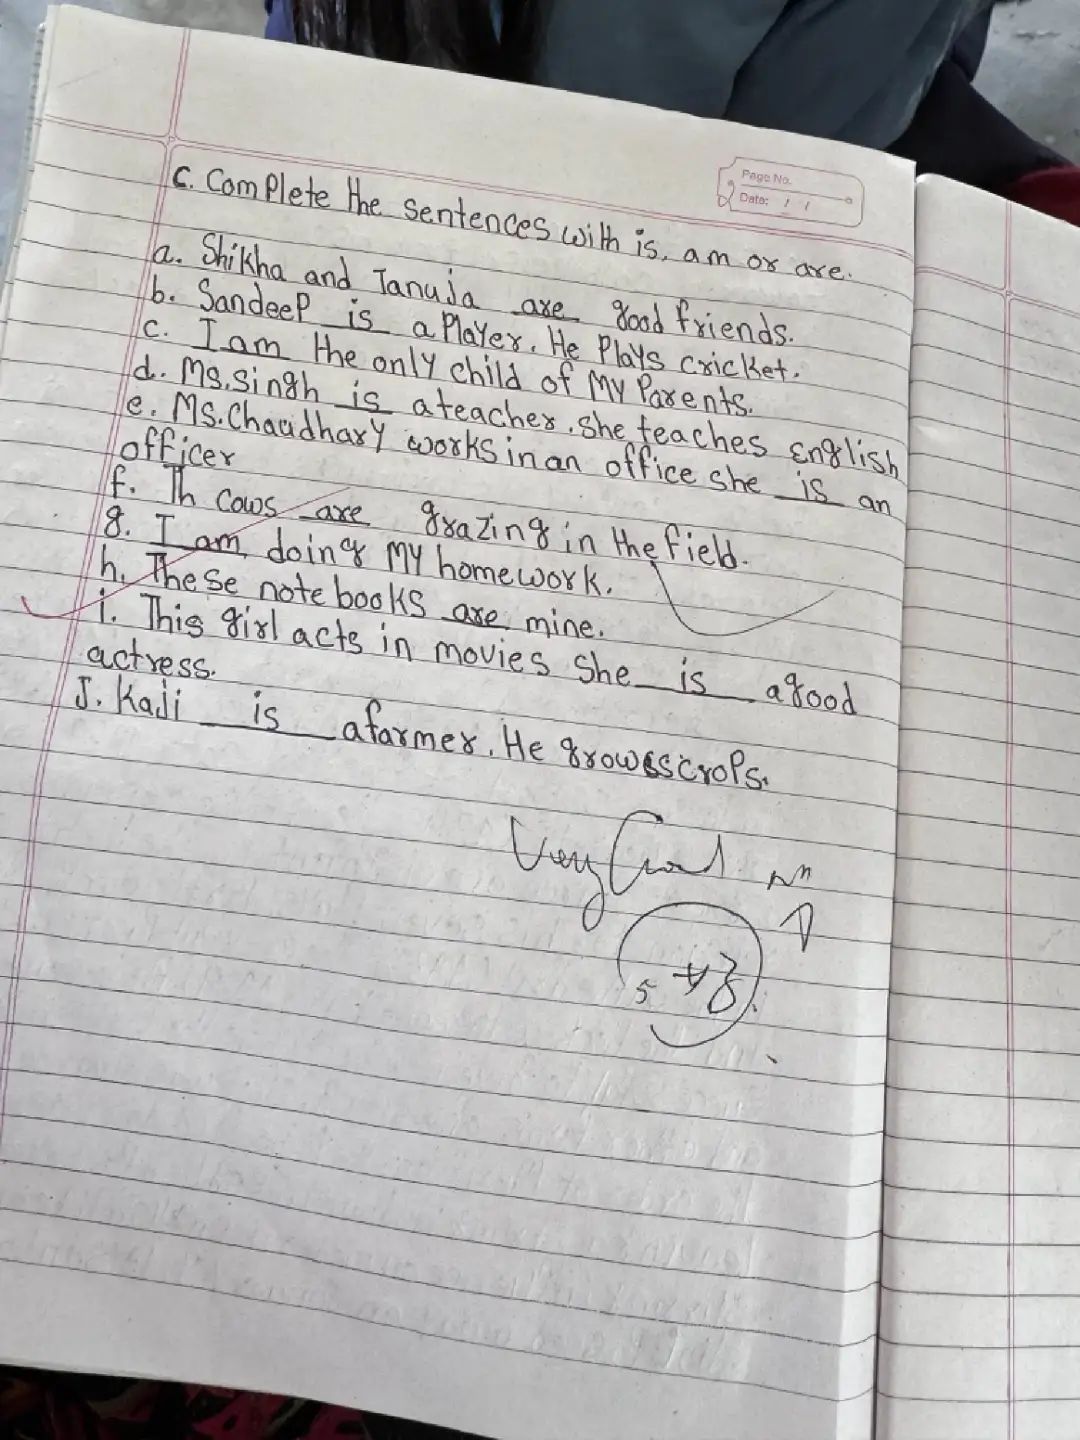 Page No.
Date: / /
C. Complete the sentences with is, am or are.
a. Shikha and Tanuja are good friends.
b. Sandeep is a Player. He Plays cricket.
c. I am the only child of My Parents.
d. Ms. Singh is a teacher. She teaches English
e. Ms. Chaudhary works in an office she is an
officer
f. Th cows are grazing in the field.
g. I am doing My homework.
h. These note books are mine.
i. This girl acts in movies She is a good
actress.
J. Kaji is a farmer. He grows crops.
Very Good